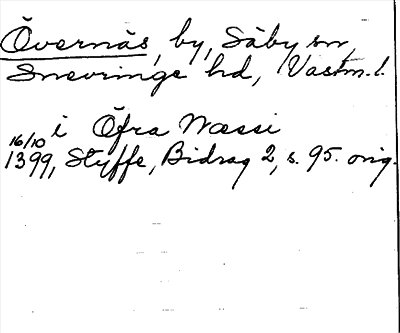 Övernäs, by, Säby sn,
Snevringe hd, Vastm. l.
i Öfra Næssi
16/10 1399, Styffe, Bidrag 2, s. 95. orig.